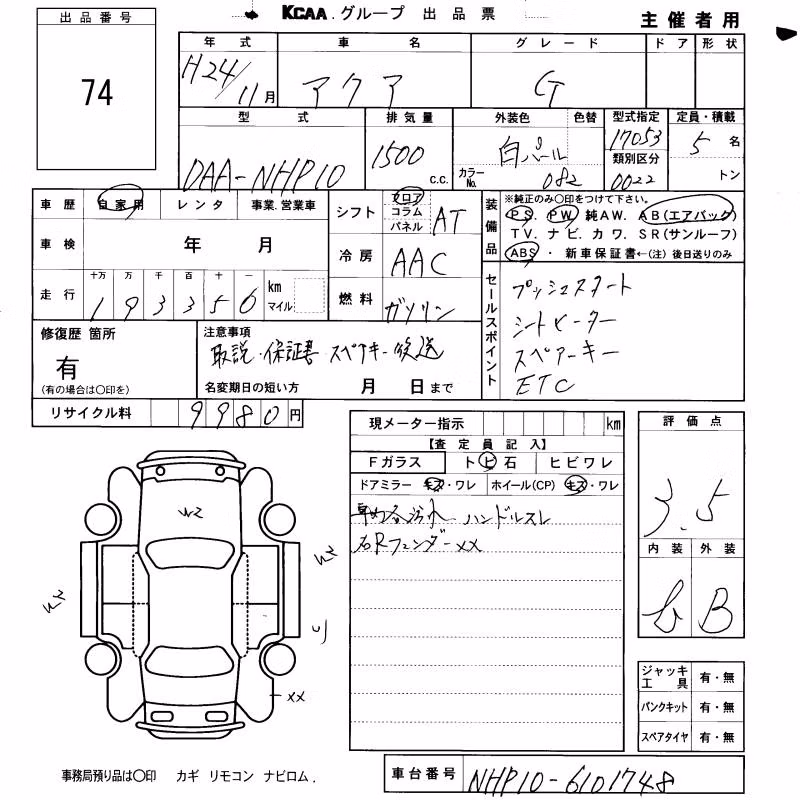 KCAA. グループ 出品票
主催者用
出品番号
74
年式 車名 グレード ドア 形状
H24/11月 アクア G
型式 排気量 外装色 色替 型式指定 定員・積載
DAA-NHP10 1500 c.c. 白パール カラーNo. 082 17053 5 名
類別区分
0022 トン
車歴 自家用 レンタ 事業.営業車
シフト フロア コラム パネル AT
装備品 ※純正のみ〇印をつけて下さい。
PS. PW. 純AW. AB(エアバック)
TV. ナビ. カワ. SR(サンルーフ)
ABS ・ 新車保証書←(注) 後日送りのみ
車検 年 月
冷房 AAC
走行 十万 万 千 百 十 一 km マイル
1 9 3 3 5 6
燃料 ガソリン
セールスポイント
プッシュスタート
シートヒーター
スペアーキー
ETC
修復歴 箇所
有
(有の場合は〇印を)
注意事項
取説・保証書・スペアキー後送
名変期日の短い方 月 日まで
リサイクル料 9980円
現メーター指示 km
【査定員記入】
Fガラス ト ビ 石 ヒビワレ
ドアミラー キズ・ワレ ホイール(CP) キズ・ワレ
ハンドルスレ
右Rフェンダー XX
評価点
3.5
内装 外装
b B
W2
W2
W2
XX
ジャッキ工具 有・無
パンクキット 有・無
スペアタイヤ 有・無
事務局預り品は〇印 カギ リモコン ナビロム.
車台番号 NHP10-6101748